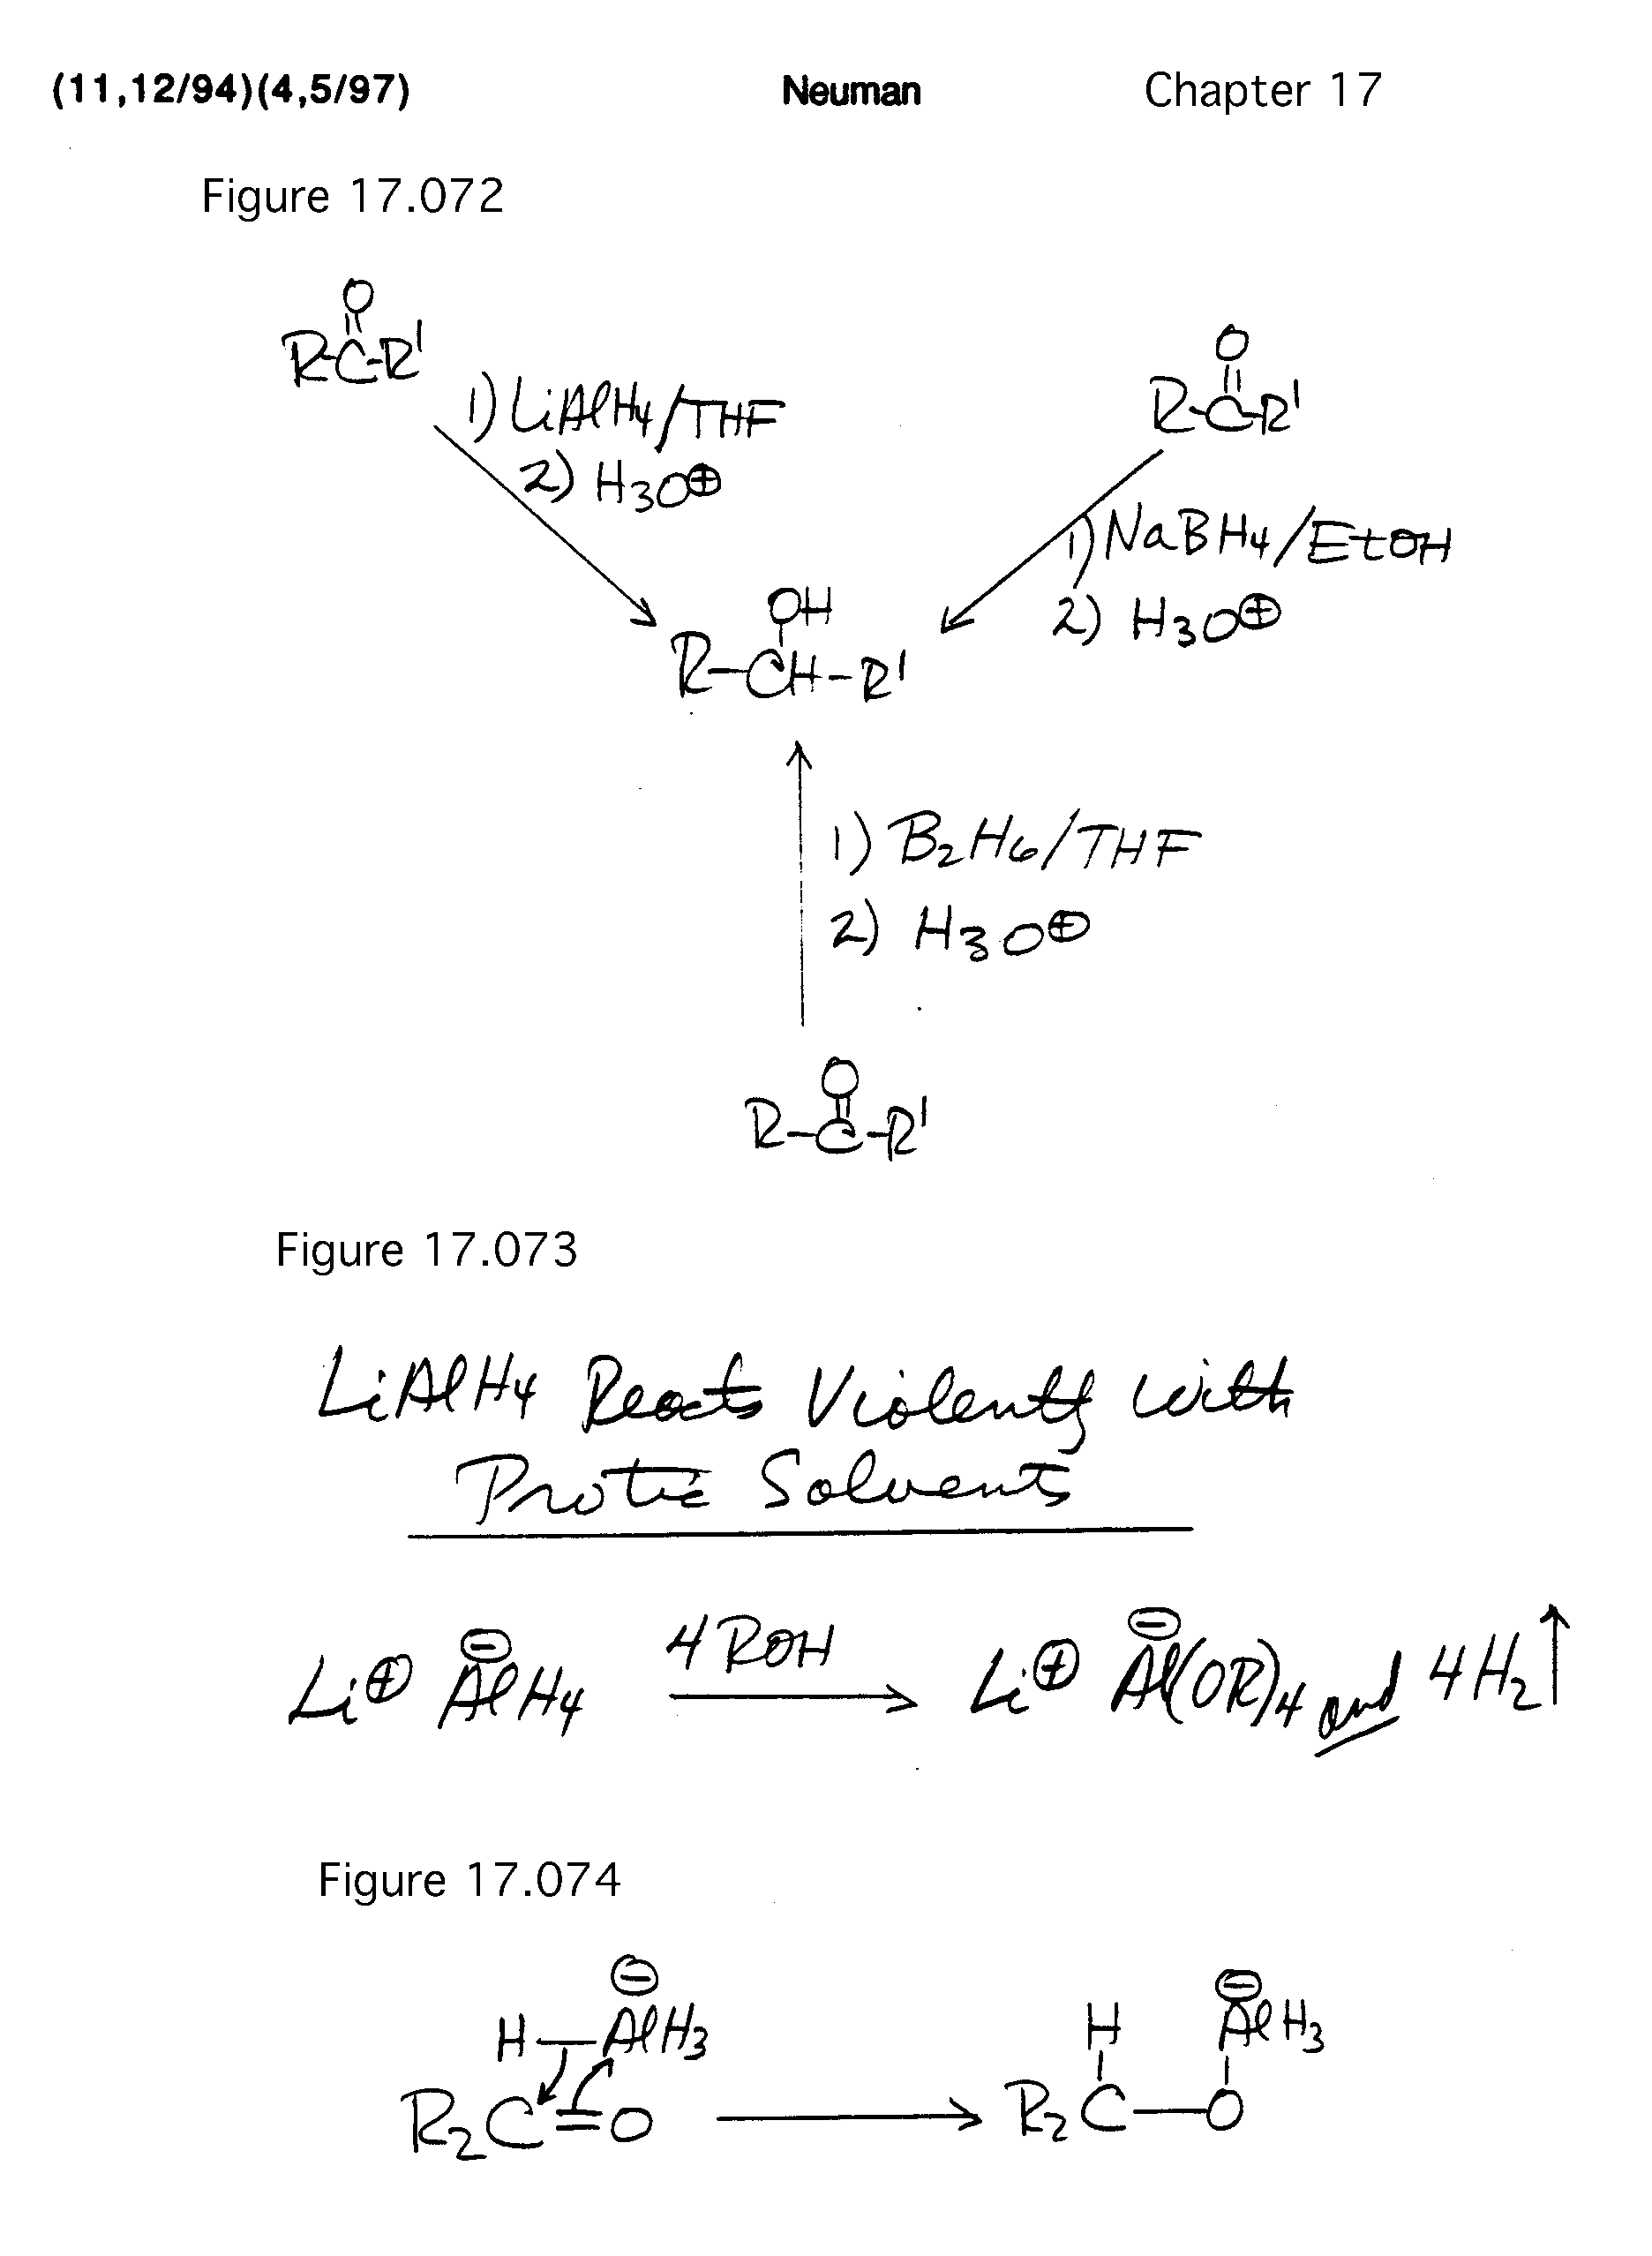 (11,12/94)(4,5/97) Neuman Chapter 17
Figure 17.072
O
R-C-R'
1) LiAlH4/THF
2) H3O⊕
O
R-C-R'
1) NaBH4/EtOH
2) H3O⊕
OH
R-CH-R'
1) B2H6/THF
2) H3O⊕
O
R-C-R'
Figure 17.073
LiAlH4 Reacts Violently with
Protic Solvents
⊖ 4 ROH ⊖
Li⊕ AlH4 → Li⊕ Al(OR)4 and 4H2↑
Figure 17.074
⊖ ⊖
H—AlH3 H AlH3
R2C=O → R2C—O